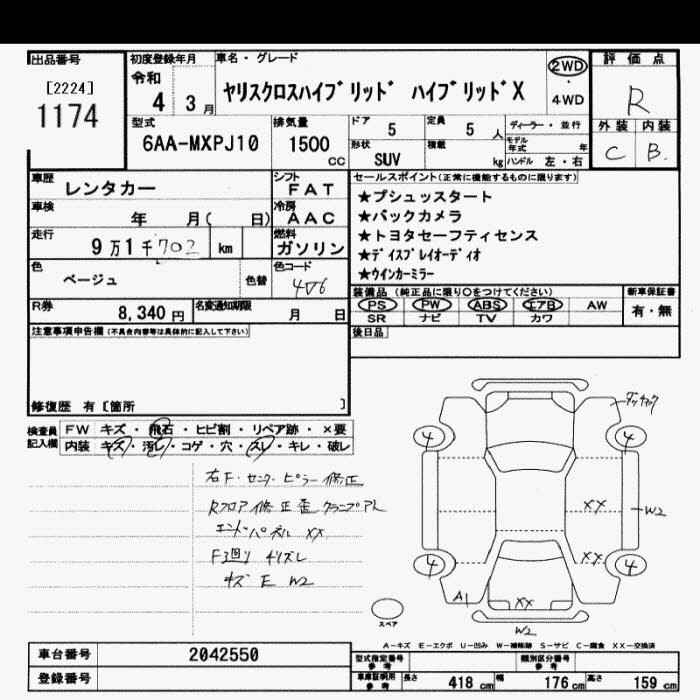 出品番号
[2224]
1174
初度登録年月
令和
4 3月
車名・グレード
ヤリスクロスハイブリッド ハイブリッドX
2WD
・
4WD
評価点
R
外装 内装
C B.
型式
6AA-MXPJ10
排気量
1500
CC
ドア 5
定員 5 人
形状 SUV
積載 kg
ディーラー・並行
モデル年式 年
ハンドル 左・右
車歴 レンタカー
シフト FAT
車検 年 月( 日)
冷房 AAC
走行 9万1千702 km
燃料 ガソリン
色 ベージュ
色替
色コード
4V6
R券 8,340円
名変通知期限 月 日
セールスポイント(正常に機能するものに限ります)
★プシュッスタート
★バックカメラ
★トヨタセーフティセンス
★ディスプレイオーディオ
★ウインカーミラー
装備品 (純正品に限り○をつけてください)
PS PW ABS エアB AW
SR ナビ TV カワ
新車保証書
有・無
後日品
注意事項申告欄(不具合内容等は具体的に記入して下さい)
修復歴 有[箇所 ]
検査員記入欄
FW キズ・飛石・ヒビ割・リペア跡・×要
内装 キズ・汚レ・コゲ・穴・スレ・キレ・破レ
右F・センタ・ピラー修正
Rフロア修正歪クランプアト
エンドパネル XX
F3回り キリズレ
キズ E W2
4
4
XX
W2
4
XX
4
A1
XX
W2
スペア
A-キズ E-エクボ U-凹み W-補修跡 S-サビ C-腐食 XX-交換済
車台番号 2042550
登録番号
型式指定番号参考
類別区分番号参考
車庫証明用参考
長さ 418cm 幅 176cm 高さ 159cm